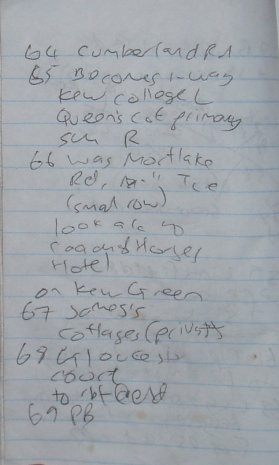 64 Cumberland Rd
65 Becomes 1-way
Kew College L
Queen's CofE primary
sch R
66 was Mortlake
Rd, " Tce
(small row)
look
Coach & Horses
Hotel
on Kew Green
67 James's
cottages (private)
68 Gloucester
court
to
69 PB